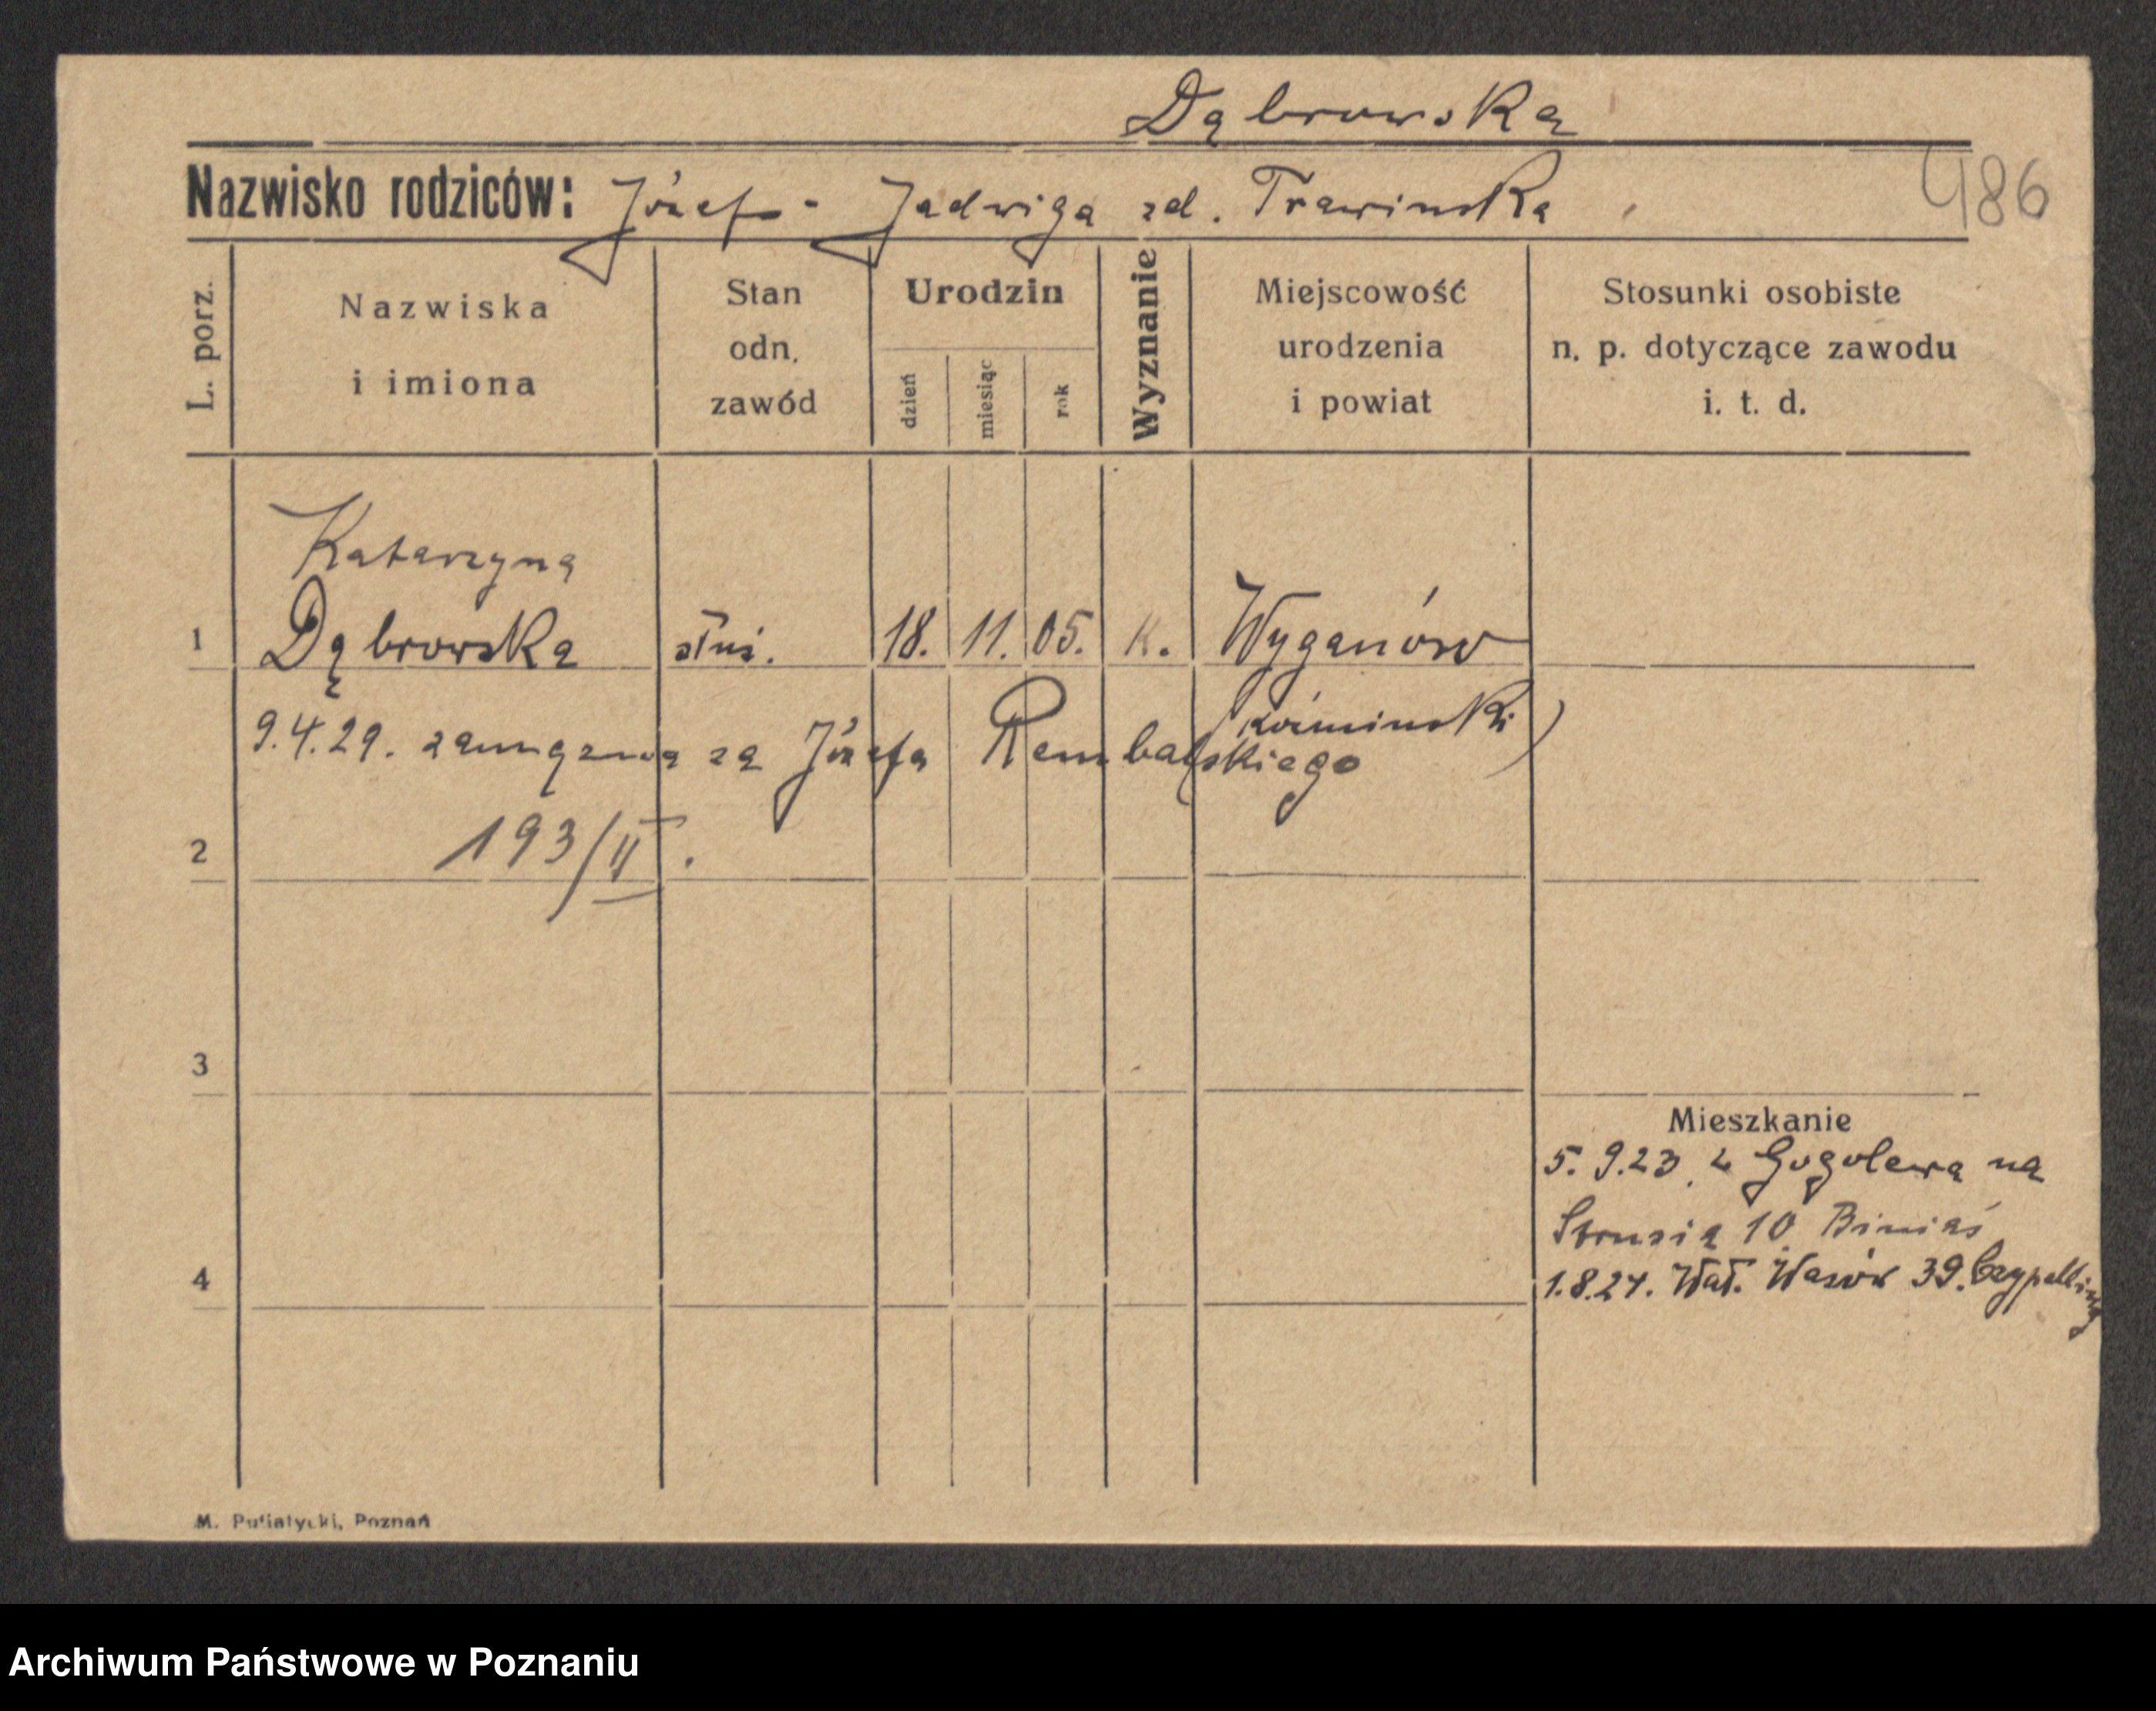 Dąbrowska
486
Nazwisko rodziców: Józef - Jadwiga zd. Trawinska
L. porz.
Nazwiska i imiona
Stan odn. zawód
Urodzin
dzień
miesiąc
rok
Wyznanie
Miejscowość urodzenia i powiat
Stosunki osobiste n. p. dotyczące zawodu i. t. d.
Katarzyna
1 Dąbrowska służ. 18. 11. 05. k. Wyganów
(koźminski)
9.4.29. zamężna za Józefa Rembalskiego
2 193/II.
3
Mieszkanie
5.9.23 z Gogolewa na
Strusia 10 Biniaś
4 1.8.24. Wał. Wazów 39.
M. Putiatycki, Poznań
Archiwum Państwowe w Poznaniu